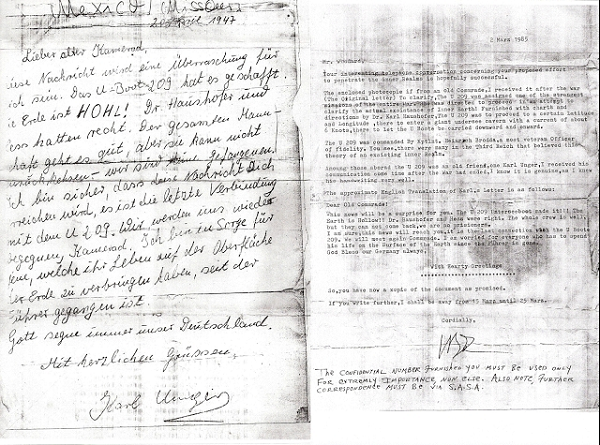 Mexico, Missouri
1947
Lieber alter Kamerad,
diese Nachricht wird eine überraschung für
dich sein. Das U-Boot 209 hat es geschafft.
Die Erde ist HOHL! Dr. Haushofer und
Hess hatten recht. Der gesamten Mann-
schaft geht es gut, aber sie kann nicht
wir sind Gefangenen.
Ich bin sicher, dass diese Nachricht Dich
erreichen wird, es ist die letzte Verbindung
mit dem U 209. Wir werden uns wieder
begegnen, Kamerad. Ich bin in Sorge für
jene, welche ihr Leben auf der Oberfläche
der Erde zu verbringen haben, seit der
Führer gegangen ist.
Gott segne immer unser Deutschland.
Mit herzlichen Grüssen,
Karl Unger
2 Mars 1985
Mr. Woodard,
Your interesting telephone conversation concerning your proposed effort
to penetrate the inner Realms is hopefully successful.
The enclosed photocopie if from an old Comerade, I received it after the war
(The Original Letter) To clarify, The U 209 was assigned one of the strangest
missions of the entire war. She was directed to proceed in an attempt to
clarify the actual existence of Inner World. Furnished with charts and
directions by Dr. Karl Haushofer, The U 209 was to proceed to a certain Latitude
and Longitude, there to enter into a giant undersea cavern with a current of about
6 Knots, there to let the U Boote be carried downward and onward.
The U 209 was commanded By Kptlnt. Heinrich Brodda, a most veteran Officer
of fidelity. You see, there were many in the Third Reich that believed this
theory of an existing inner Realm.
Among those aboard the U 209 was an old friend, one Karl Unger, I received his
communication some time after the war had ended, I know it is genuine, as I knew
his handwriting very well.
The approximate English Translation of Karl's Letter is as follows:
Dear Old Comerade!
This news will be a surprise for you. The U 209 made it!!! The
Earth is Hollow!! Dr. Haushofer and Hess were right. The whole crew is well
but they can not come back, we are no prisoners.
I am sure, this news will reach you, it is the last connection with the U Boote
209. We will meet again Comerade. I am worried for everyone who has to spend
his life on the Surface of the Earth since the Führer is gone.
God Bless our Germany always.
With Hearty Greetings
So, you have now a copie of the document as promised.
If you write further, I shall be away from 15 Mars until 25 Mars.
Cordially,
THE CONFIDENTIAL NUMBER FURNISHED YOU MUST BE USED ONLY
FOR EXTREMLY IMPORTANCE, NON ELSE. ALSO NOTE, FURTHER
CORRESPONDENCE MUST BE VIA S.A.S.A.